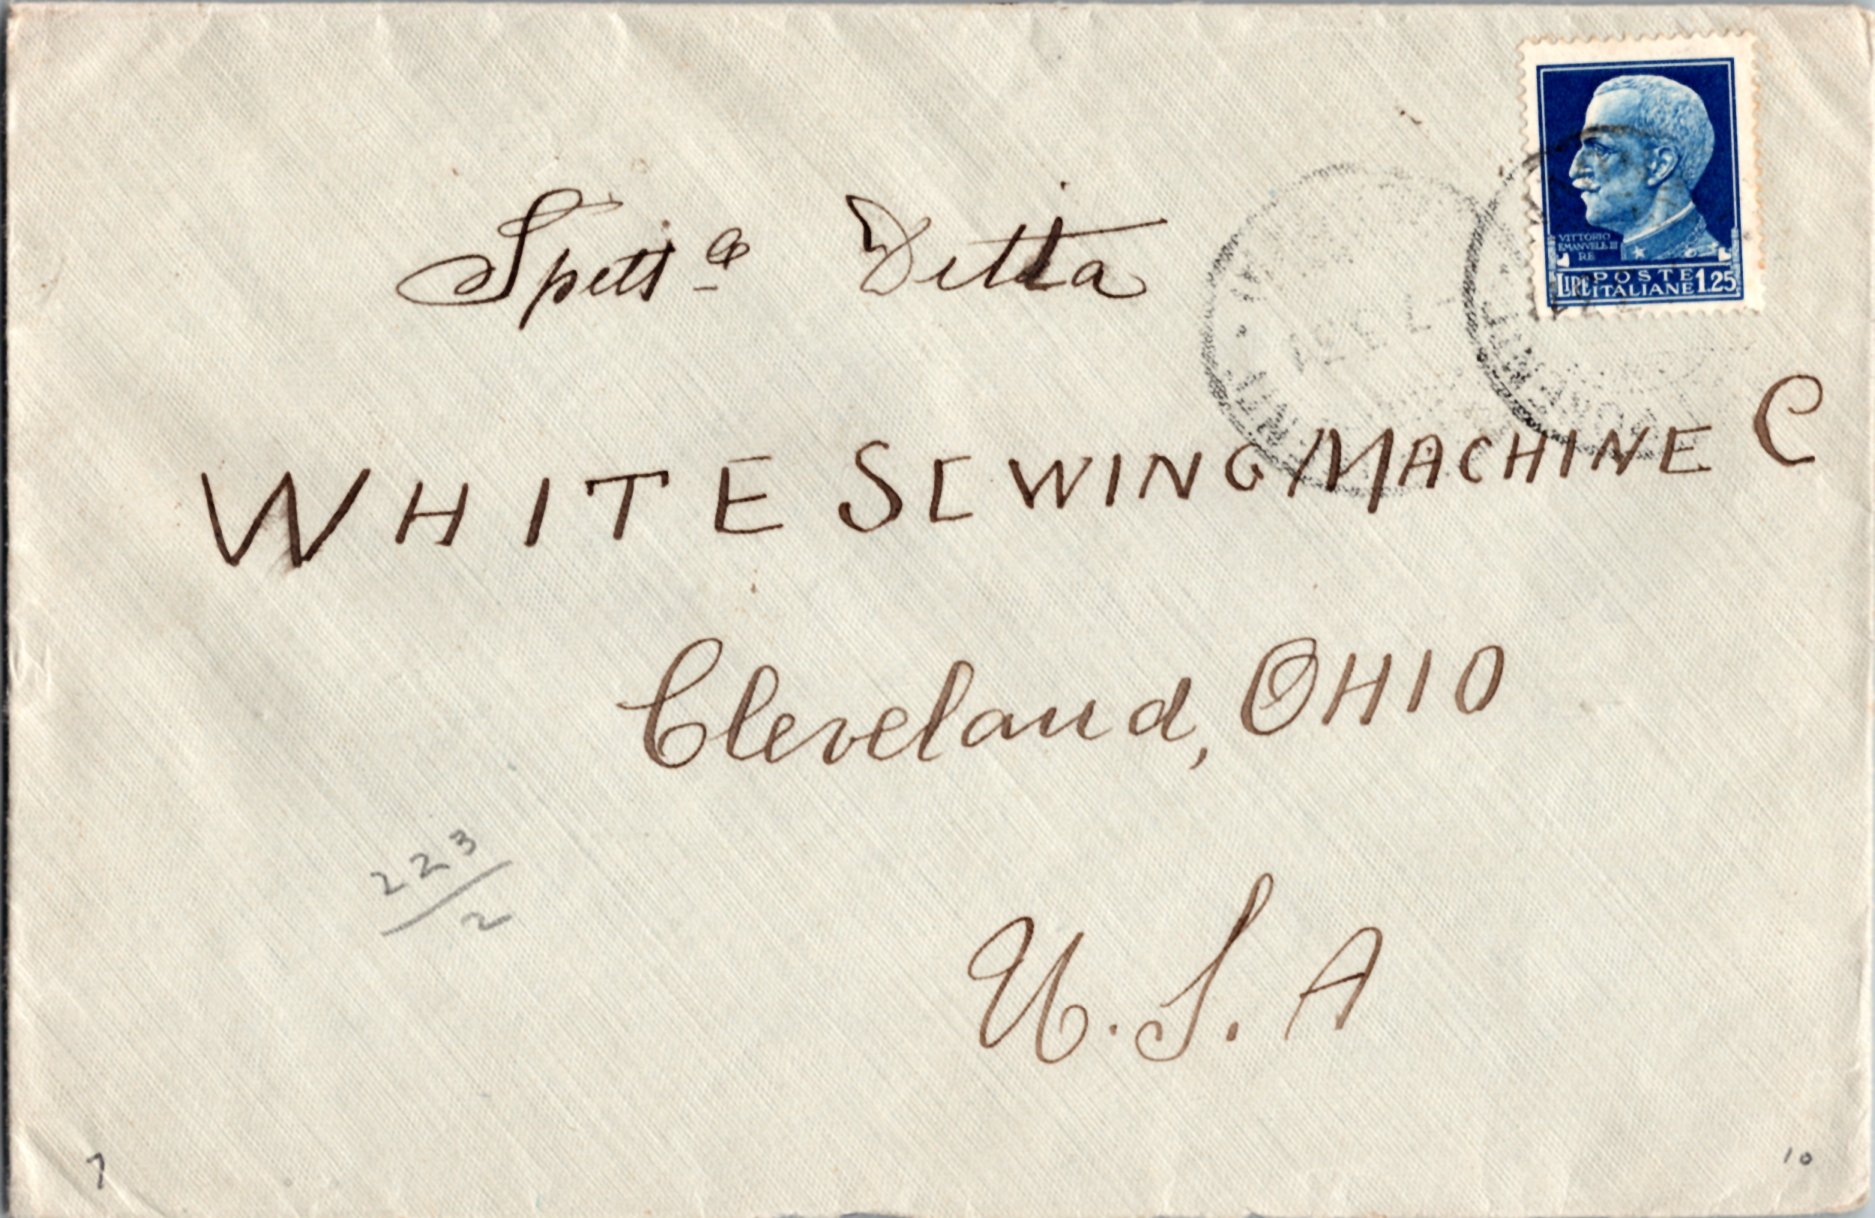 VITTORIO
EMANVELE III
RE
LIRE POSTE ITALIANE 1.25
Spett.ª Ditta
WHITE SEWING MACHINE C
Cleveland, OHIO
U.S.A
223/2
7
10